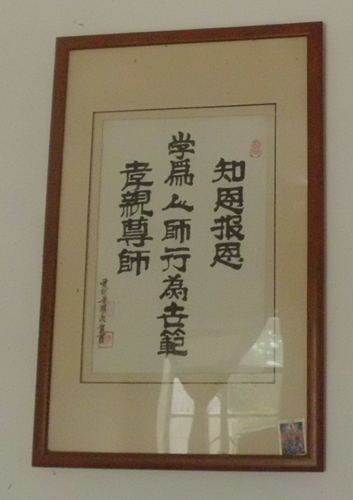 知恩报恩
学爲人師行為世範
孝親尊師